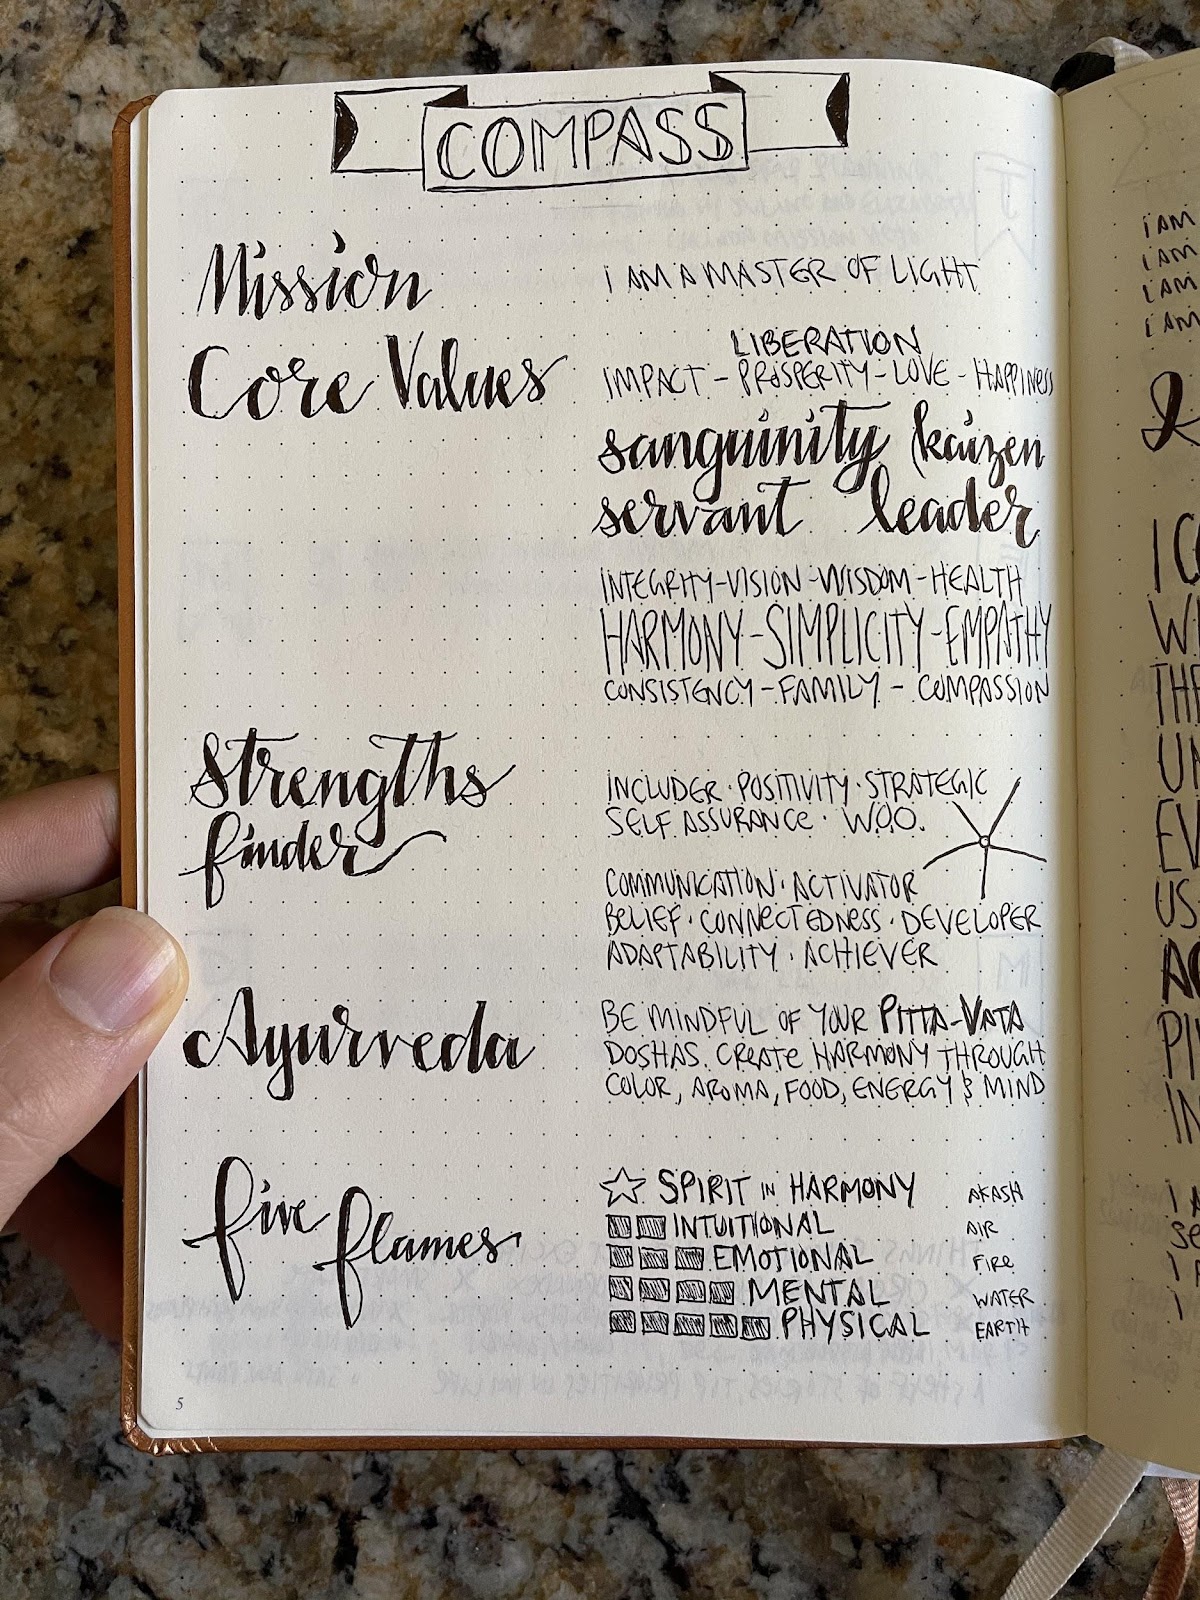 COMPASS
Mission
I AM A MASTER OF LIGHT
Core Values
LIBERATION
IMPACT - PROSPERITY - LOVE - HAPPINESS
sanguinity (kaizen
servant leader
INTEGRITY - VISION - WISDOM - HEALTH
HARMONY - SIMPLICITY - EMPATHY
CONSISTENCY - FAMILY - COMPASSION
Strengths
finder
INCLUDER · POSITIVITY · STRATEGIC
SELF ASSURANCE · W.O.O.
COMMUNICATION · ACTIVATOR
BELIEF · CONNECTEDNESS · DEVELOPER
ADAPTABILITY · ACHIEVER
Ayurveda
BE MINDFUL OF YOUR PITTA-VATA
DOSHAS. CREATE HARMONY THROUGH
COLOR, AROMA, FOOD, ENERGY & MIND
five
flames
SPIRIT IN HARMONY AKASH
INTUITIONAL AIR
EMOTIONAL FIRE
MENTAL WATER
PHYSICAL EARTH
5
I AM
I AM
I AM
I AM
I
US
I
I